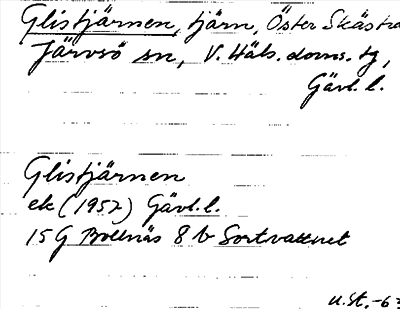 Glistjärnen, tjärn, Öster Skästra
Järvsö sn, V. Häls. doms. tg,
Gävl. l.
Glistjärnen
ek (1957) Gävl. l.
15 G Bollnäs 8 b Sortvattnet
U.St. -63